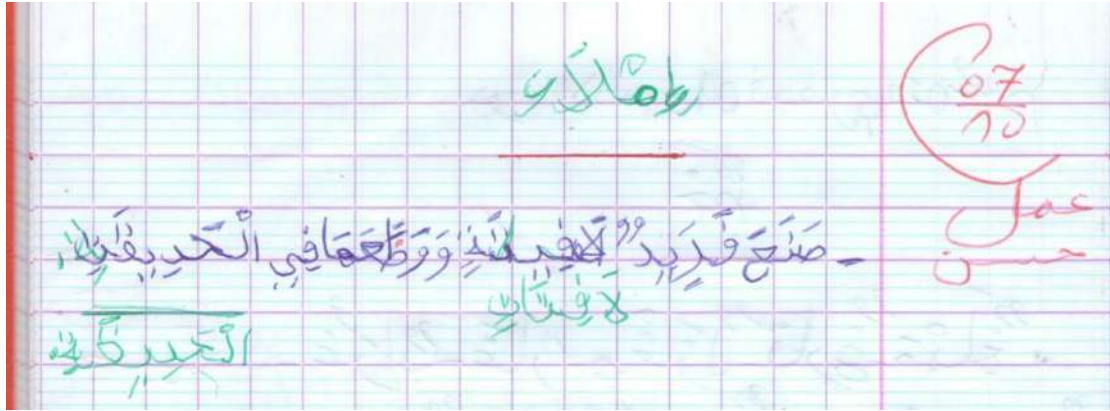 إملاء
07
10
عمل
حسن
- صَنَعَ فَرِيدٌ لَافِتَةٍ وَوَظَعَهَا فِي الْحَدِيقَةِ.
لَافِتَاتٍ
الْحَدِيقَةِ.